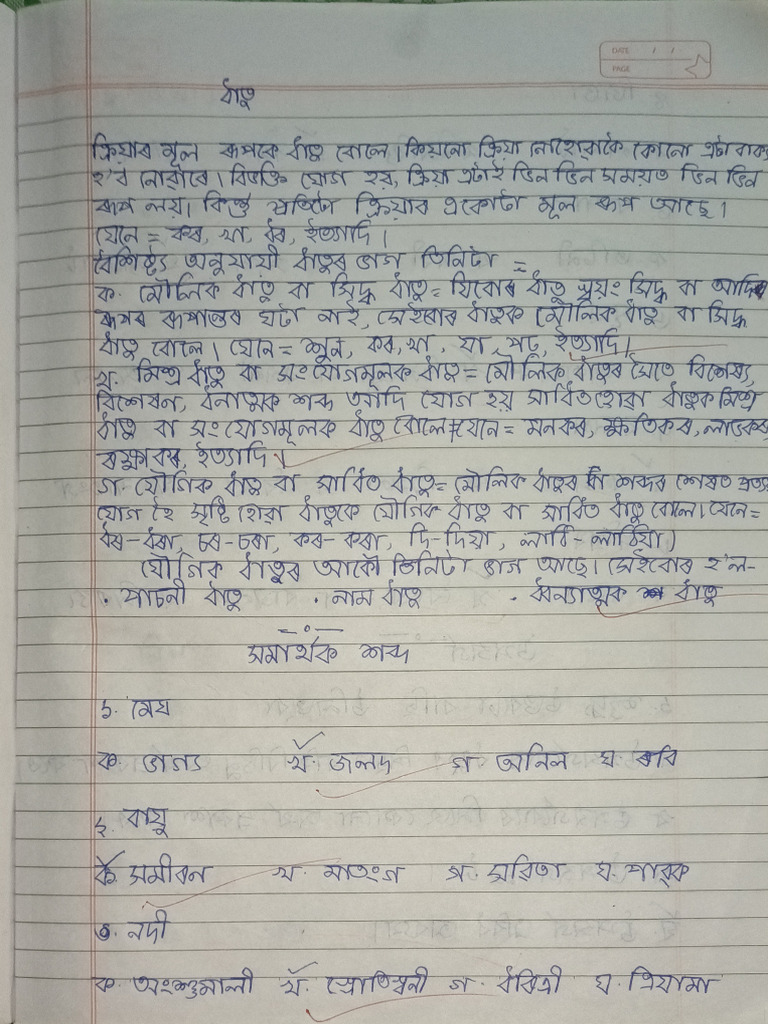 DATE / /
PAGE
ধাতু
ক্ৰিয়াৰ মূল ৰূপকে ধাতু বোলে। কিয়নো ক্ৰিয়া নোহোৱাকৈ কোনো এটা বাক্য
হ'ব নোৱাৰে। বিভক্তি যোগ হয়, ক্ৰিয়া এটাই ভিন ভিন সময়ত ভিন ভিন
ৰূপ লয়। কিন্তু প্ৰতিটো ক্ৰিয়াৰ একোটা মূল ৰূপ আছে।
যেনে = কৰ, খা, ধৰ, ইত্যাদি।
বৈশিষ্ট্য অনুযায়ী ধাতুৰ ভাগ তিনিটা =
ক. মৌলিক ধাতু বা সিদ্ধ ধাতু = যিবোৰ ধাতু স্বয়ং সিদ্ধ বা আদিৰ
ৰূপৰ ৰূপান্তৰ ঘটা নাই, সেইবোৰ ধাতুক মৌলিক ধাতু বা সিদ্ধ
ধাতু বোলে। যেনে = শুন, কৰ, খা, যা, পঢ়, ইত্যাদি।
খ. মিশ্ৰ ধাতু বা সংযোগমূলক ধাতু = মৌলিক ধাতুৰ সৈতে বিশেষ্য,
বিশেষন, ধনাত্মক শব্দ আদি যোগ হয় সাধিতহোৱা ধাতুক মিশ্ৰ
ধাতু বা সংযোগমূলক ধাতু বোলে। যেনে = মনকৰ, ক্ষতিকৰ, লাভকৰ,
ৰক্ষাকৰ, ইত্যাদি।
গ. যৌগিক ধাতু বা সাধিত ধাতু = মৌলিক ধাতুৰ বা শব্দৰ শেষত প্ৰত্যয়
যোগ হৈ সৃষ্টি হোৱা ধাতুকে যৌগিক ধাতু বা সাধিত ধাতু বোলে। যেনে =
ধৰ - ধৰা, চৰ - চৰা, কৰ - কৰা, দি - দিয়া, লাঠি - লাঠিয়া)
যৌগিক ধাতুৰ আকৌ তিনিটা ভাগ আছে। সেইবোৰ হ'ল -
. পাচনী ধাতু . নাম ধাতু . ধ্বন্যাত্মক ধাতু
সমাৰ্থক শব্দ
১. মেঘ
ক. ভাগ্য খ. জলদ গ. অনিল ঘ. ৰবি
২. বায়ু
ক. সমীৰন খ. মাতংগ গ. সৰিতা ঘ. পাৱক
৩. নদী
ক. অংশুমালী খ. স্ৰোতিস্বনী গ. ধৰিত্ৰী ঘ. ত্ৰিয়ামা